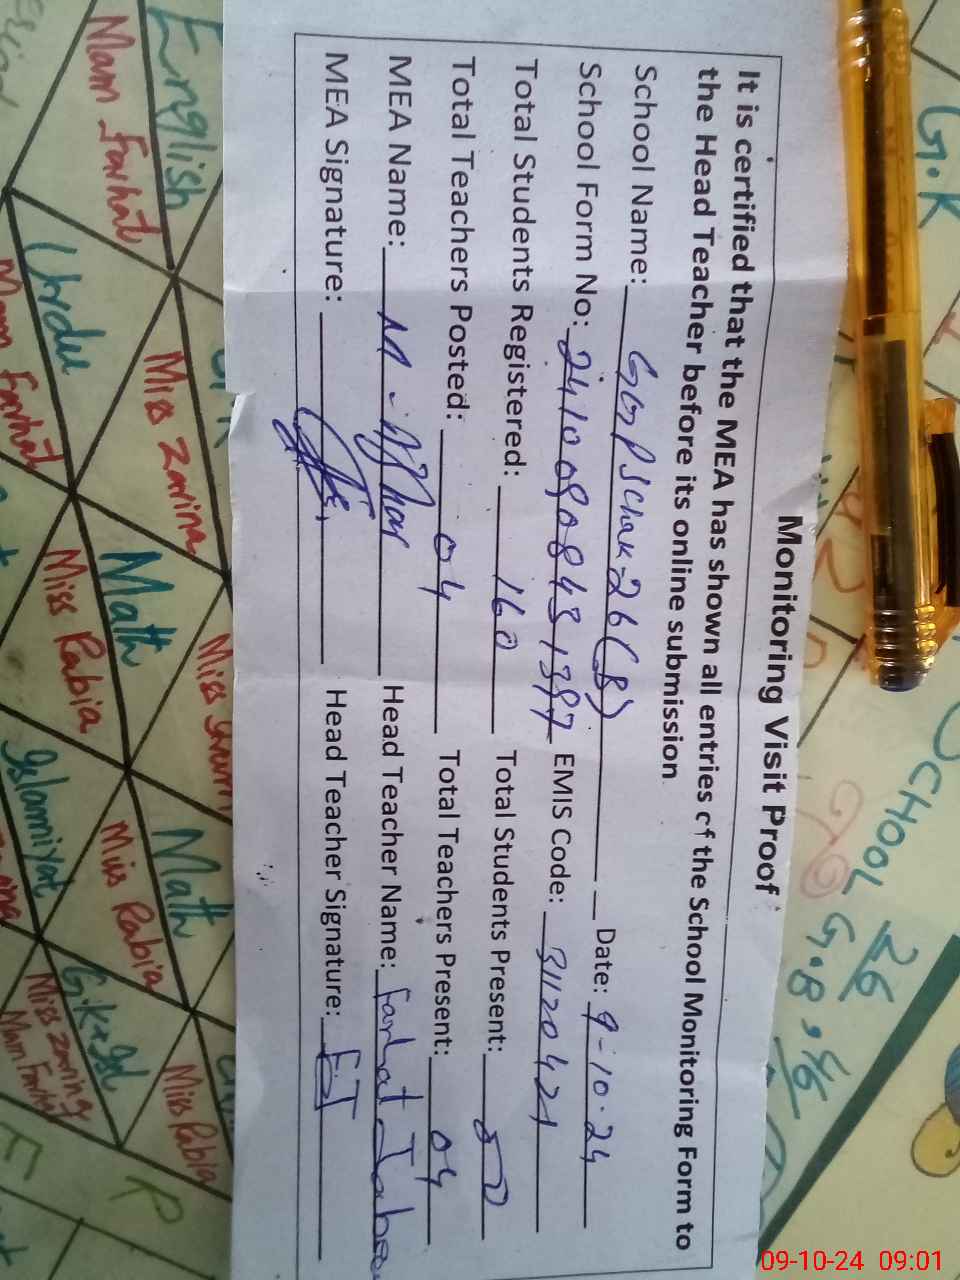 Monitoring Visit Proof
It is certified that the MEA has shown all entries of the School Monitoring Form to
the Head Teacher before its online submission
School Name: GGPS Chak-26 (B) Date: 9-10-24
School Form No: EMIS Code: 31120421
Total Students Registered: 160 Total Students Present:
Total Teachers Posted: 04 Total Teachers Present: 04
MEA Name: Head Teacher Name: Farhat
MEA Signature: Head Teacher Signature:
English
Mam Farhat
Urdu
Mam Farhat
Miss Zarina
Math
Miss Rabia
Islamiyat
Math
Miss Rabia
Miss Zarina
Mam Farhat
Miss Rabia
G.K
SCHOOL 26
09-10-24 09:01